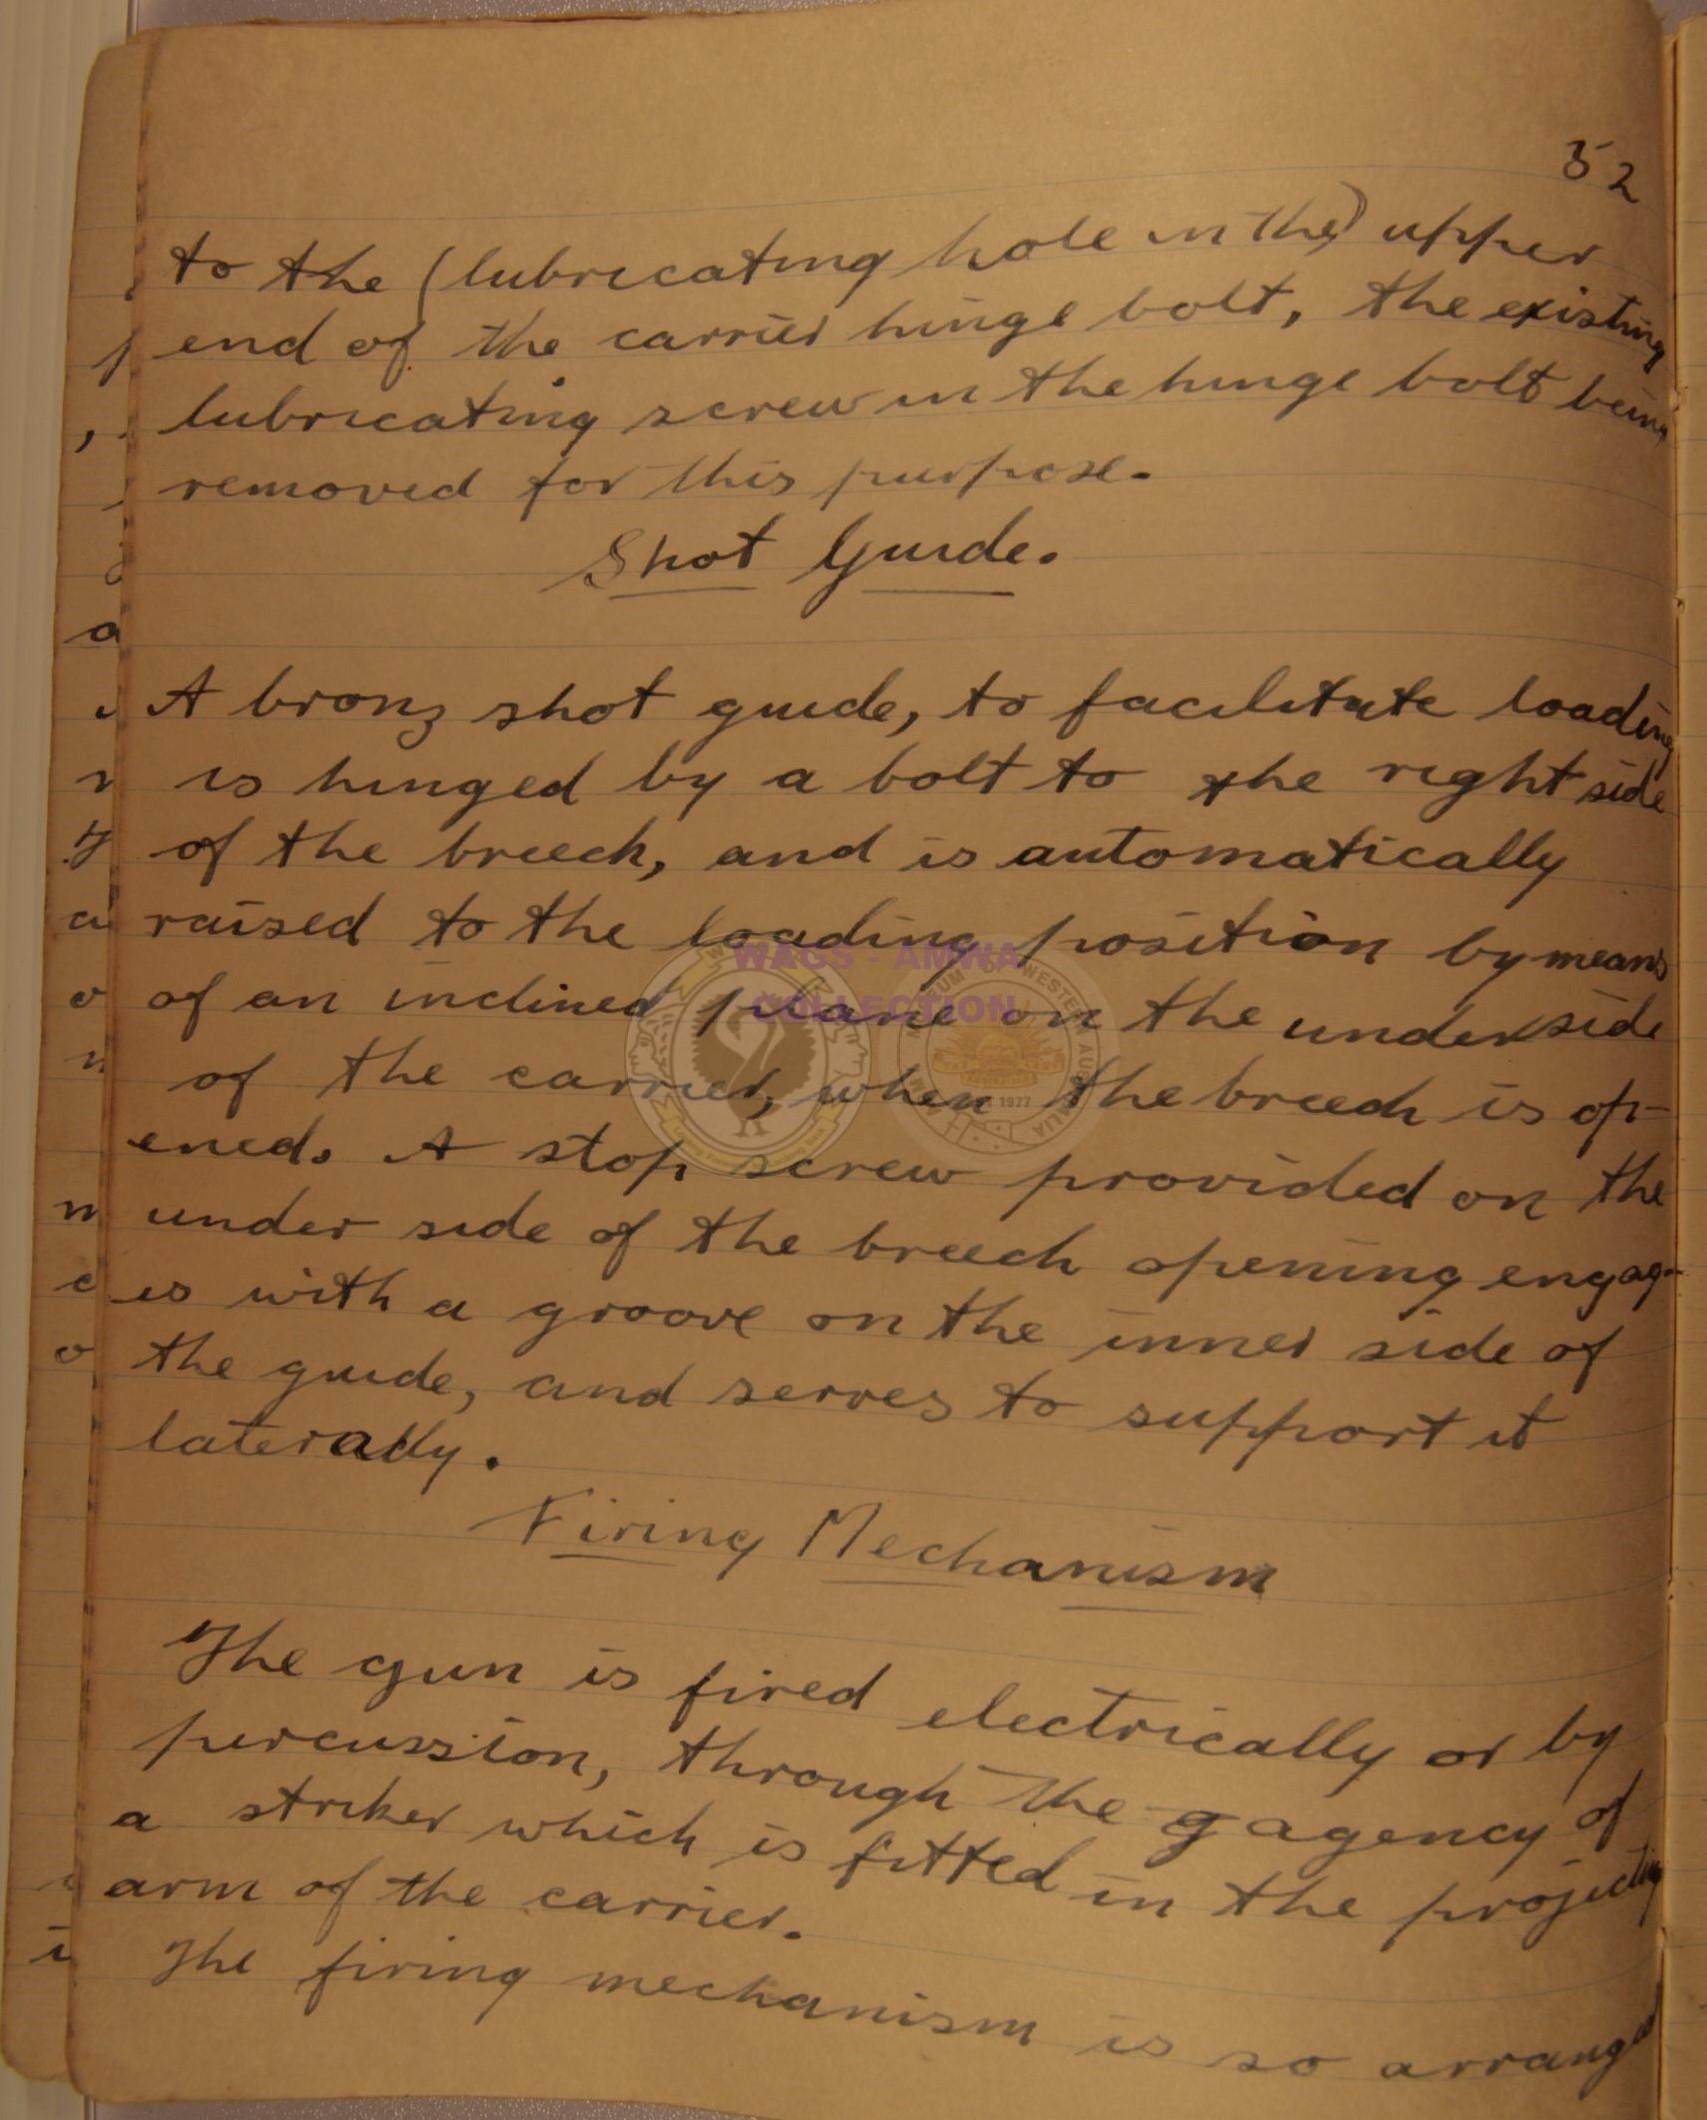 52
to the (lubricating hole in the) upper
end of the carrier hinge bolt, the existing
lubricating screw in the hinge bolt being
removed for this purpose.
Shot Guide.
A bronz shot guide, to facilitate loading
is hinged by a bolt to the right side
of the breech, and is automatically
raised to the loading position by means
of an inclined plane on the underside
of the carrier, when the breech is op-
ened. A stop screw provided on the
under side of the breech opening engag-
es with a groove on the inner side of
the guide, and serves to support it
laterally.
Firing Mechanism
The gun is fired electrically or by
percussion, through the g agency of
a striker which is fitted in the projecting
arm of the carrier.
The firing mechanism is so arranged
WAGS - AMWA
COLLECTION